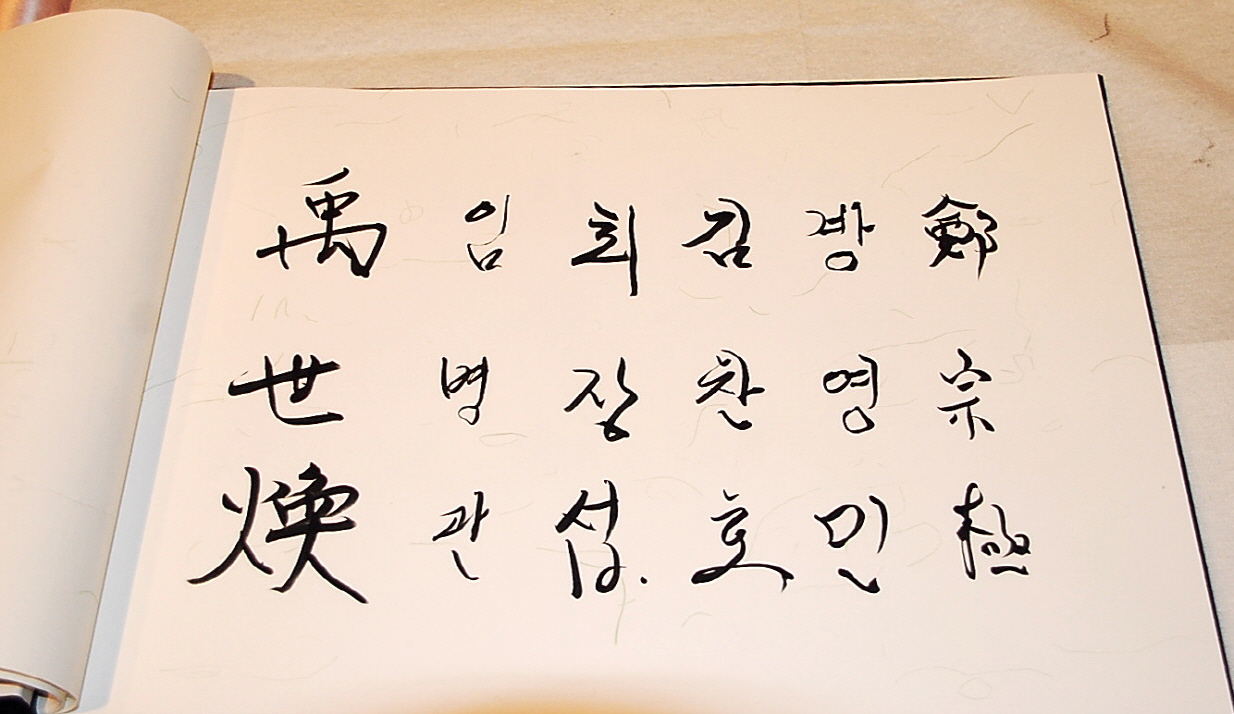 鄭宗極
영민
김찬호
최장섭.
임병관
禹世煥